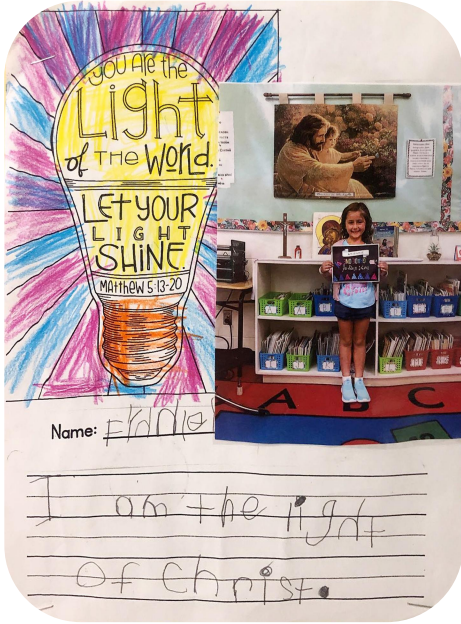 YOU ARE the
Light
of THE WORLD.
LET YOUR
LIGHT
SHINE
MATTHEW 5:13-20
Name:
I am the light
of Christ.
A B C